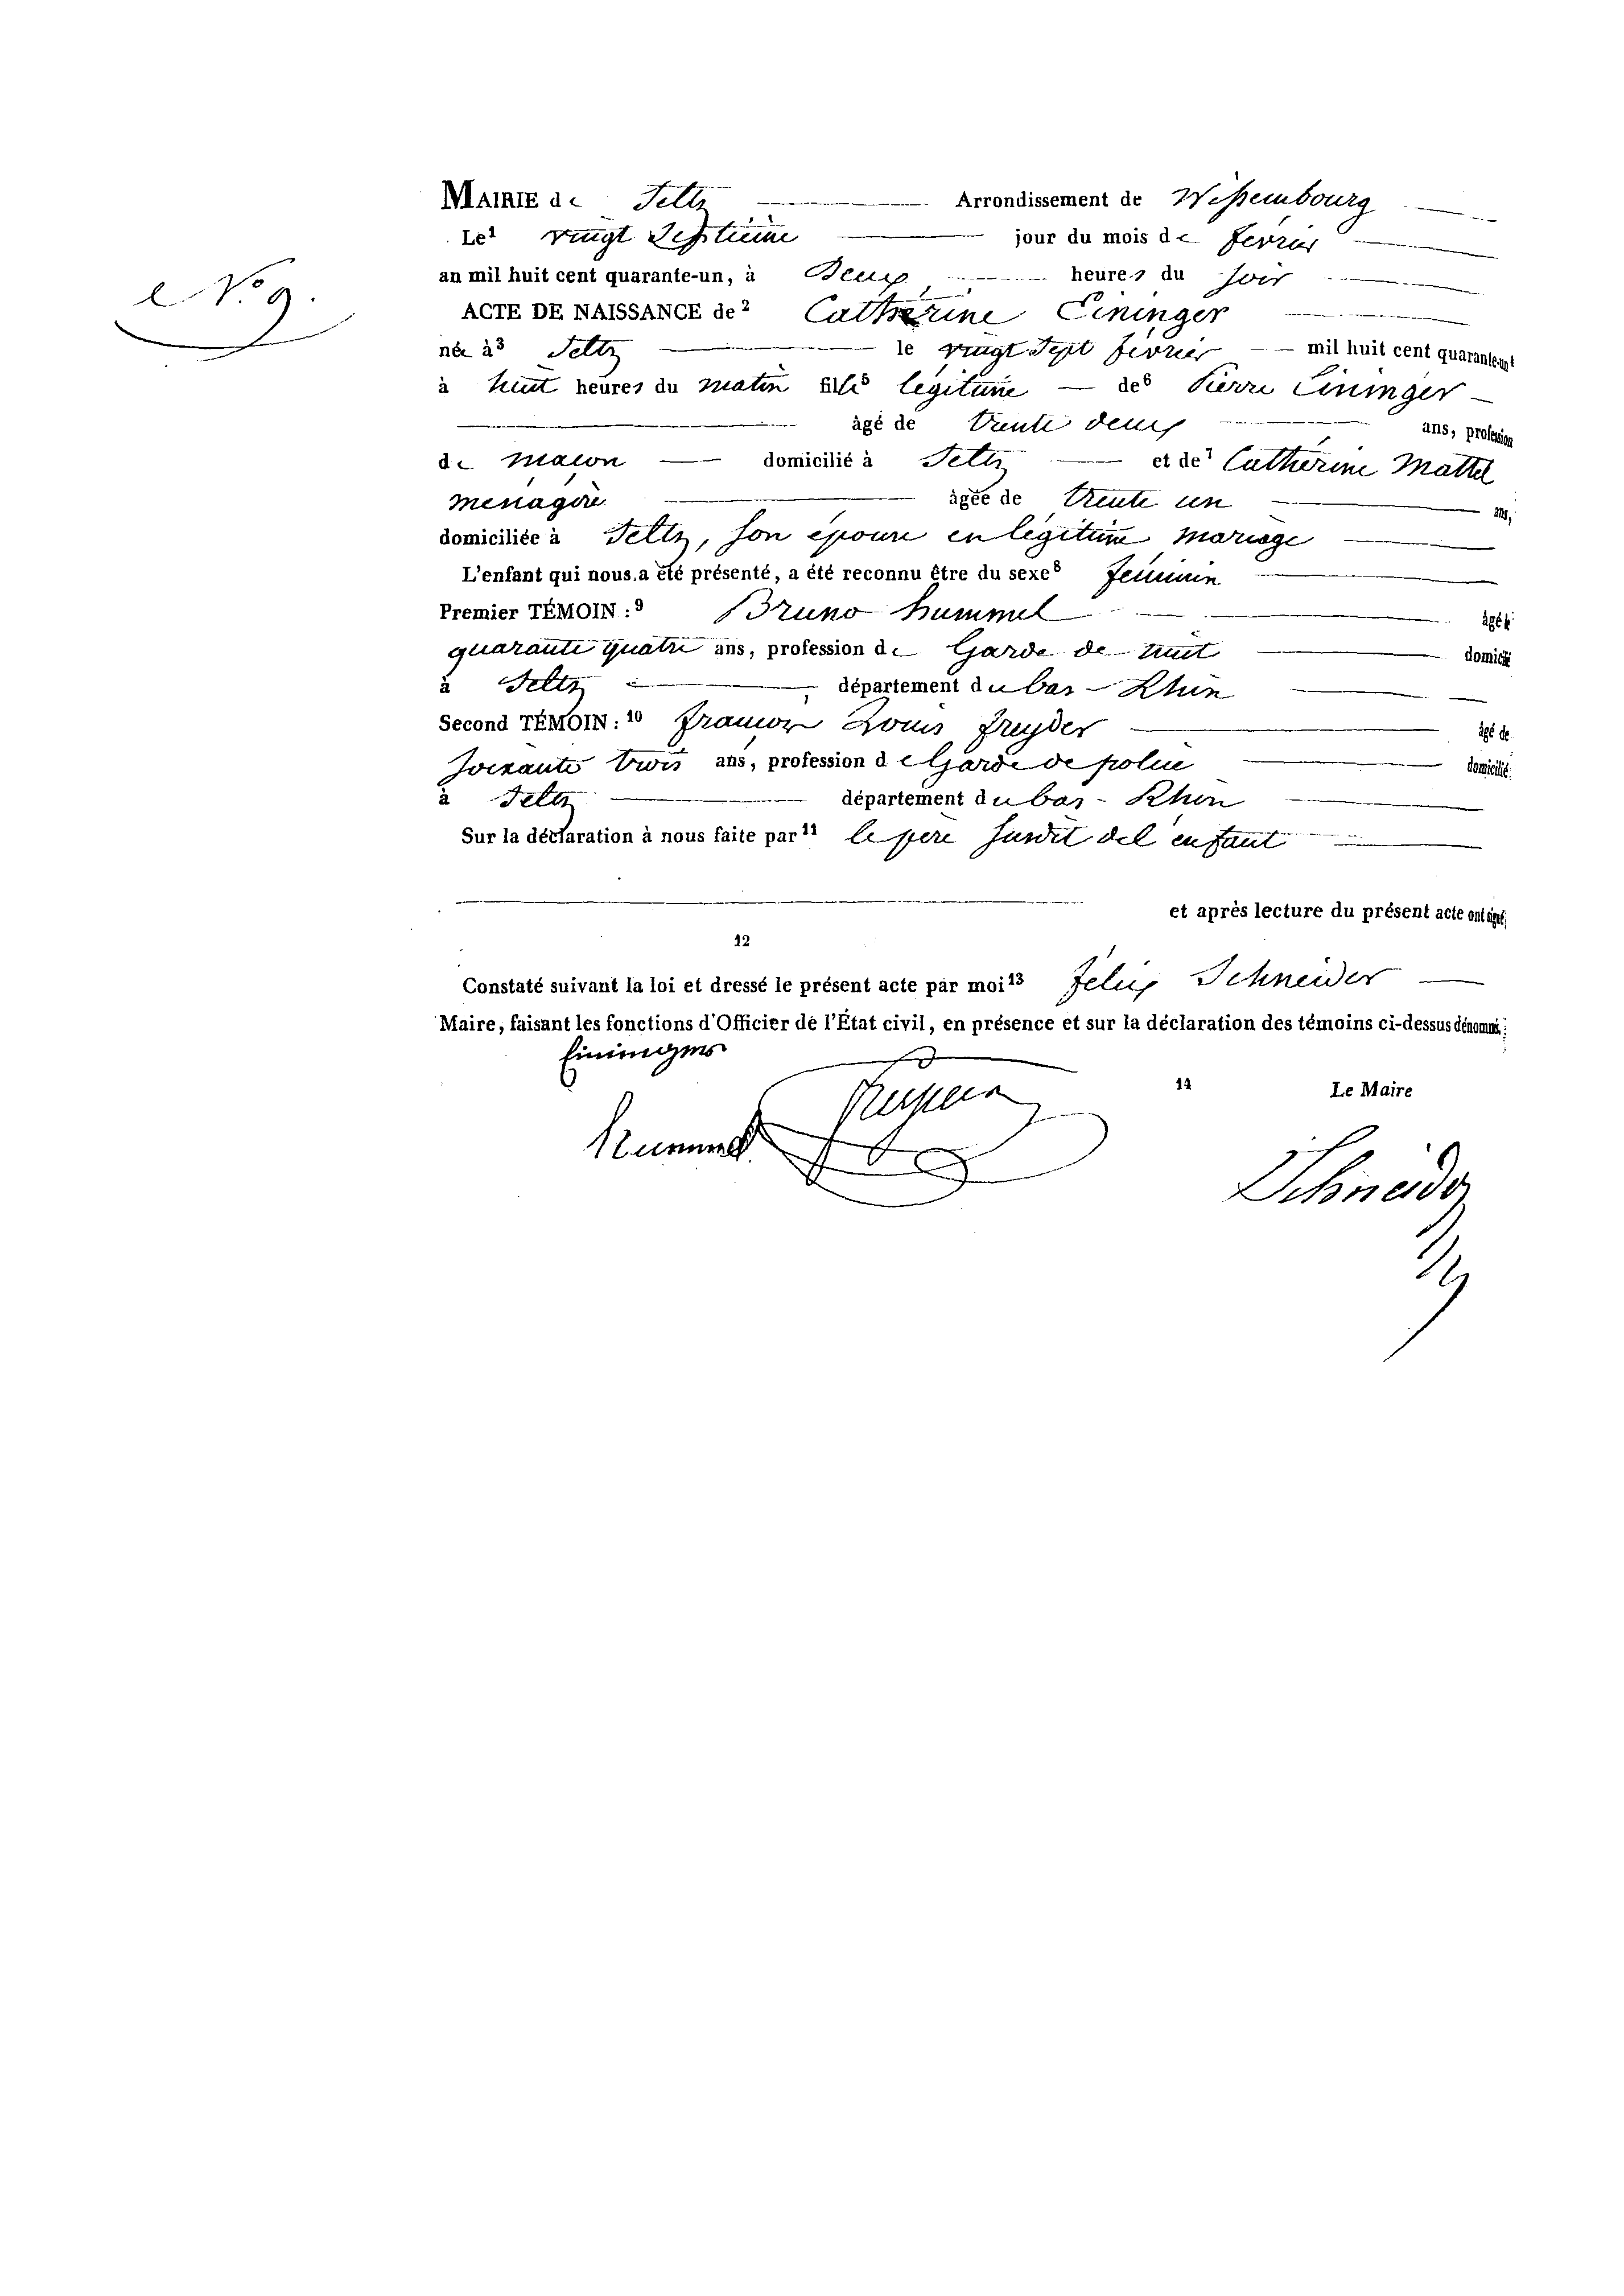 N° 9.
MAIRIE de Seltz Arrondissement de Wissembourg
Le¹ vingt Septieme jour du mois de fevrier
an mil huit cent quarante-un, à Deux heures du soir
ACTE DE NAISSANCE de² Catherine Eininger
née à³ Seltz le vingt Sept fevrier mil huit cent quarante-un
à huit heures du matin fille⁵ légitime de⁶ Pierre Eininger
âgé de trente deux ans, profession
de maçon domicilié à Seltz et de⁷ Catherine Mattel
menagère âgée de trente un ans,
domiciliée à Seltz, son épouse en légitime mariage
L'enfant qui nous a été présenté, a été reconnu être du sexe⁸ feminin
Premier TÉMOIN :⁹ Bruno hummel âgé de
quarante quatre ans, profession de Garde de nuit domicilié
à Seltz département du bas-Rhin
Second TÉMOIN : ¹⁰ francois Louis freyder âgé de
soixante trois ans, profession de Garde de police domicilié
à Seltz département du bas-Rhin
Sur la déclaration à nous faite par¹¹ le père susdit de l'enfant
et après lecture du présent acte ont signé;
12
Constaté suivant la loi et dressé le présent acte par moi¹³ félix Schneider
Maire, faisant les fonctions d'Officier de l'État civil, en présence et sur la déclaration des témoins ci-dessus dénommés:
Eininger
14 Le Maire
Hummel
Schneider